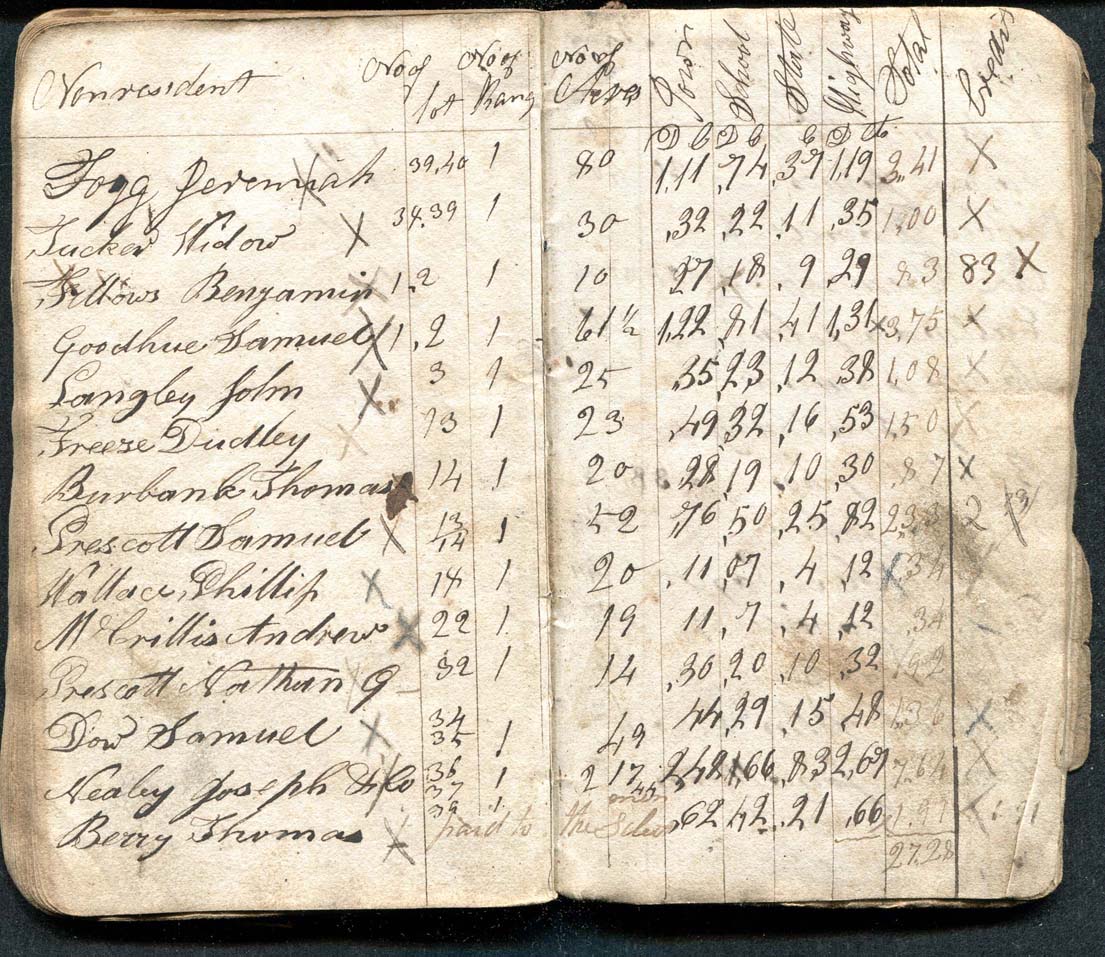 Nonresident No of lot No of Rang No of Acres Town School State Highway Total Credit
D C D C C D C
Fogg Jeremiah 39,40 1 80 1,11 ,74 ,37 1,19 3,41 X
Tucker Widow X 34,39 1 30 ,32 ,22 ,11 ,35 1,00 X
Fellows Benjamin 1,2 1 10 27 ,18 ,9 ,29 83 83 X
Goodhue Samuel X 1,2 1 61 ½ 1,22 ,81 ,41 1,31 3,75 X
Langley John X 3 1 25 ,35 ,23 ,12 ,38 1,08 X
Freese Dudley X 13 1 23 ,49 ,32 ,16 ,53 1,50 X
Burbank Thomas X 14 1 20 ,28 ,19 ,10 ,30 ,87 X
Prescott Samuel X 13 14 1 52 ,76 ,50 ,25 ,82 2,33 2
Wallace, Phillip X 18 1 20 ,11 ,07 ,4 ,12 X ,34
McCrillis Andrew X 22 1 19 11 ,7 ,4 ,12 ,34
Prescott Nathan G 32 1 14 ,30 ,20 ,10 ,32
Dow Samuel X 34 35 1 49 ,44 ,29 ,15 ,48 1,36 X
Nealey Joseph & Co 36 37 1 217 2,48 1,66 ,83 2,67 7,64 X
Berry Thomas X 39 1 paid to the ,62 ,42 ,21 ,66 1,91
27,28